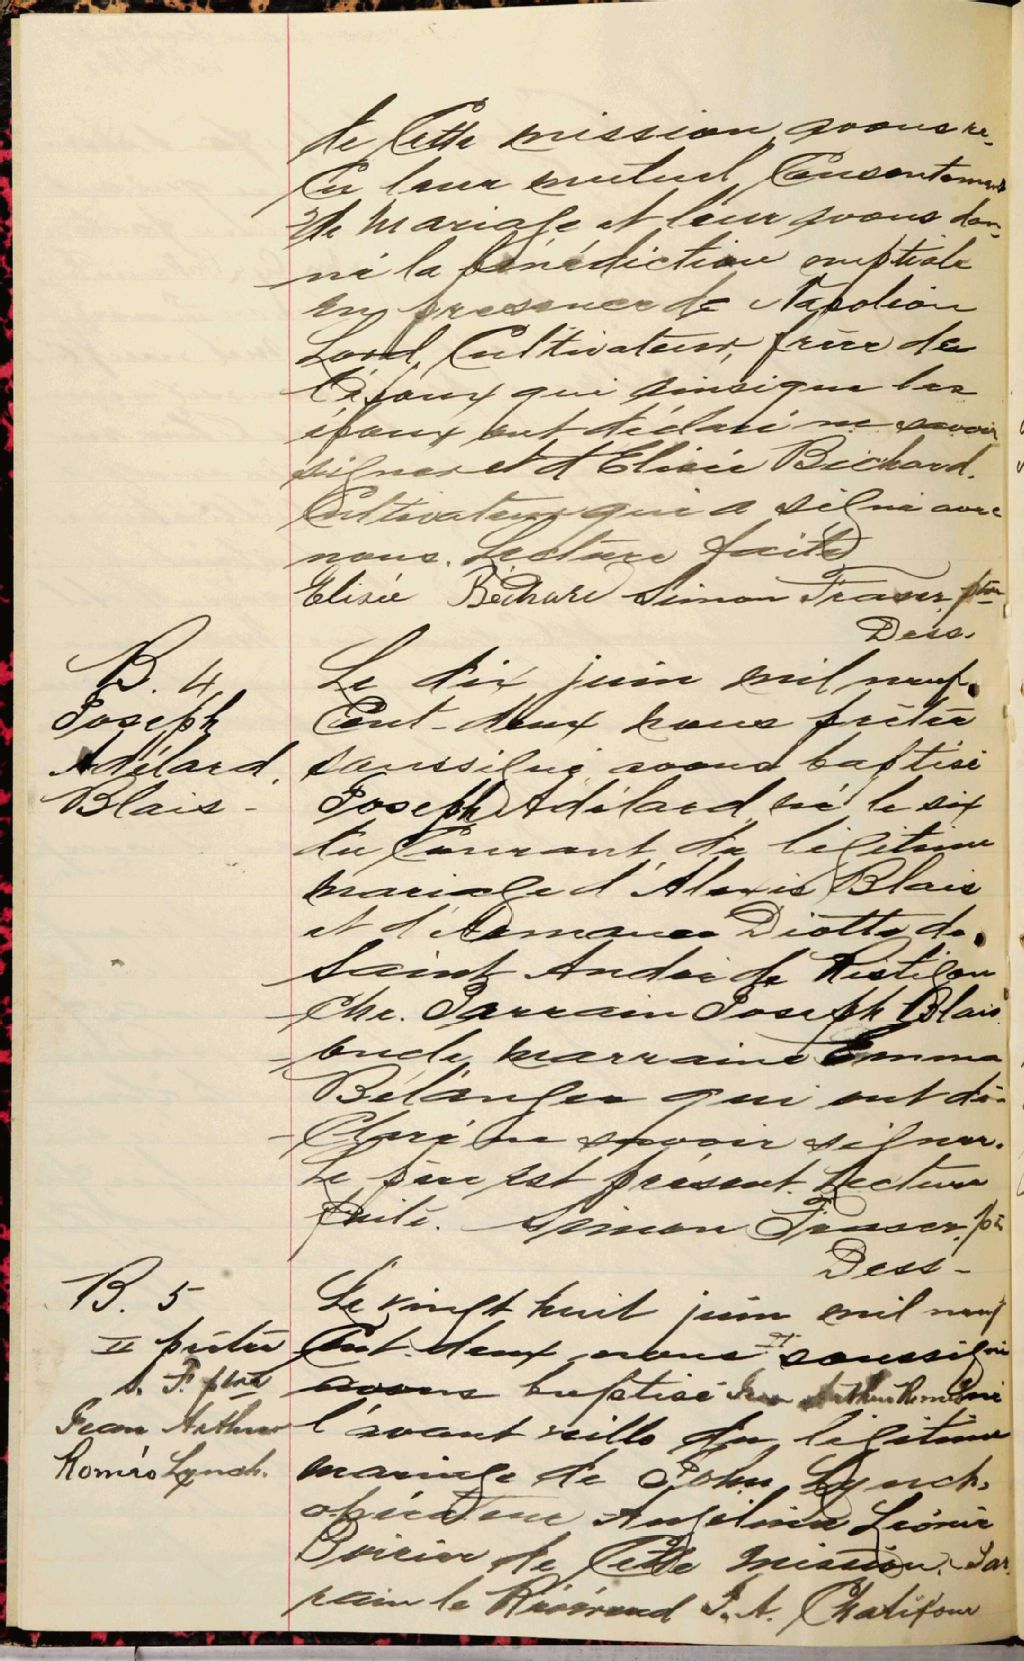 de Cette mission, avons re-
çu leur mutuel Consentement
de mariage et leur avons don-
né la bénédiction nuptiale
en presence de Napoléon
Lord, Cultivateur, frère de
l'époux qui ainsi que les
époux ont déclaré ne savoir
signer et d'Elisée Bechard.
Cultivateur qui a signé avec
nous. Lecture faite
Elisée Béchard Simon Fraser, ptre
Dess.
B. 4
Joseph
Adélard.
Blais -
Le dix juin mil neuf
Cent-deux nous prêtre
soussigné avons baptisé
Joseph Adélard né le six
du Courant, du légitime
mariage d'Alexis Blais
et d'Armance Diotte de
Saint André de Ristigou
che. Parrain Joseph Blais
oncle, marraine Emma
Bélanger qui ont dé-
claré ne savoir signer.
Le père est présent. Lecture
faite. Simon Fraser, ptr
Dess -
B. 5
II prêtre
S. F. ptre
Jean Arthur
Roméo Lynch.
Le vingt huit juin mil neuf
Cent-deux nous II soussigné
avons baptisé Jean Arthur Roméo né
l'avant veille du légitime
mariage de John Lynch,
opérateur Angélina Léonie
Poirier de Cette mission. Par
rain le Révérend J. A. Chalifour